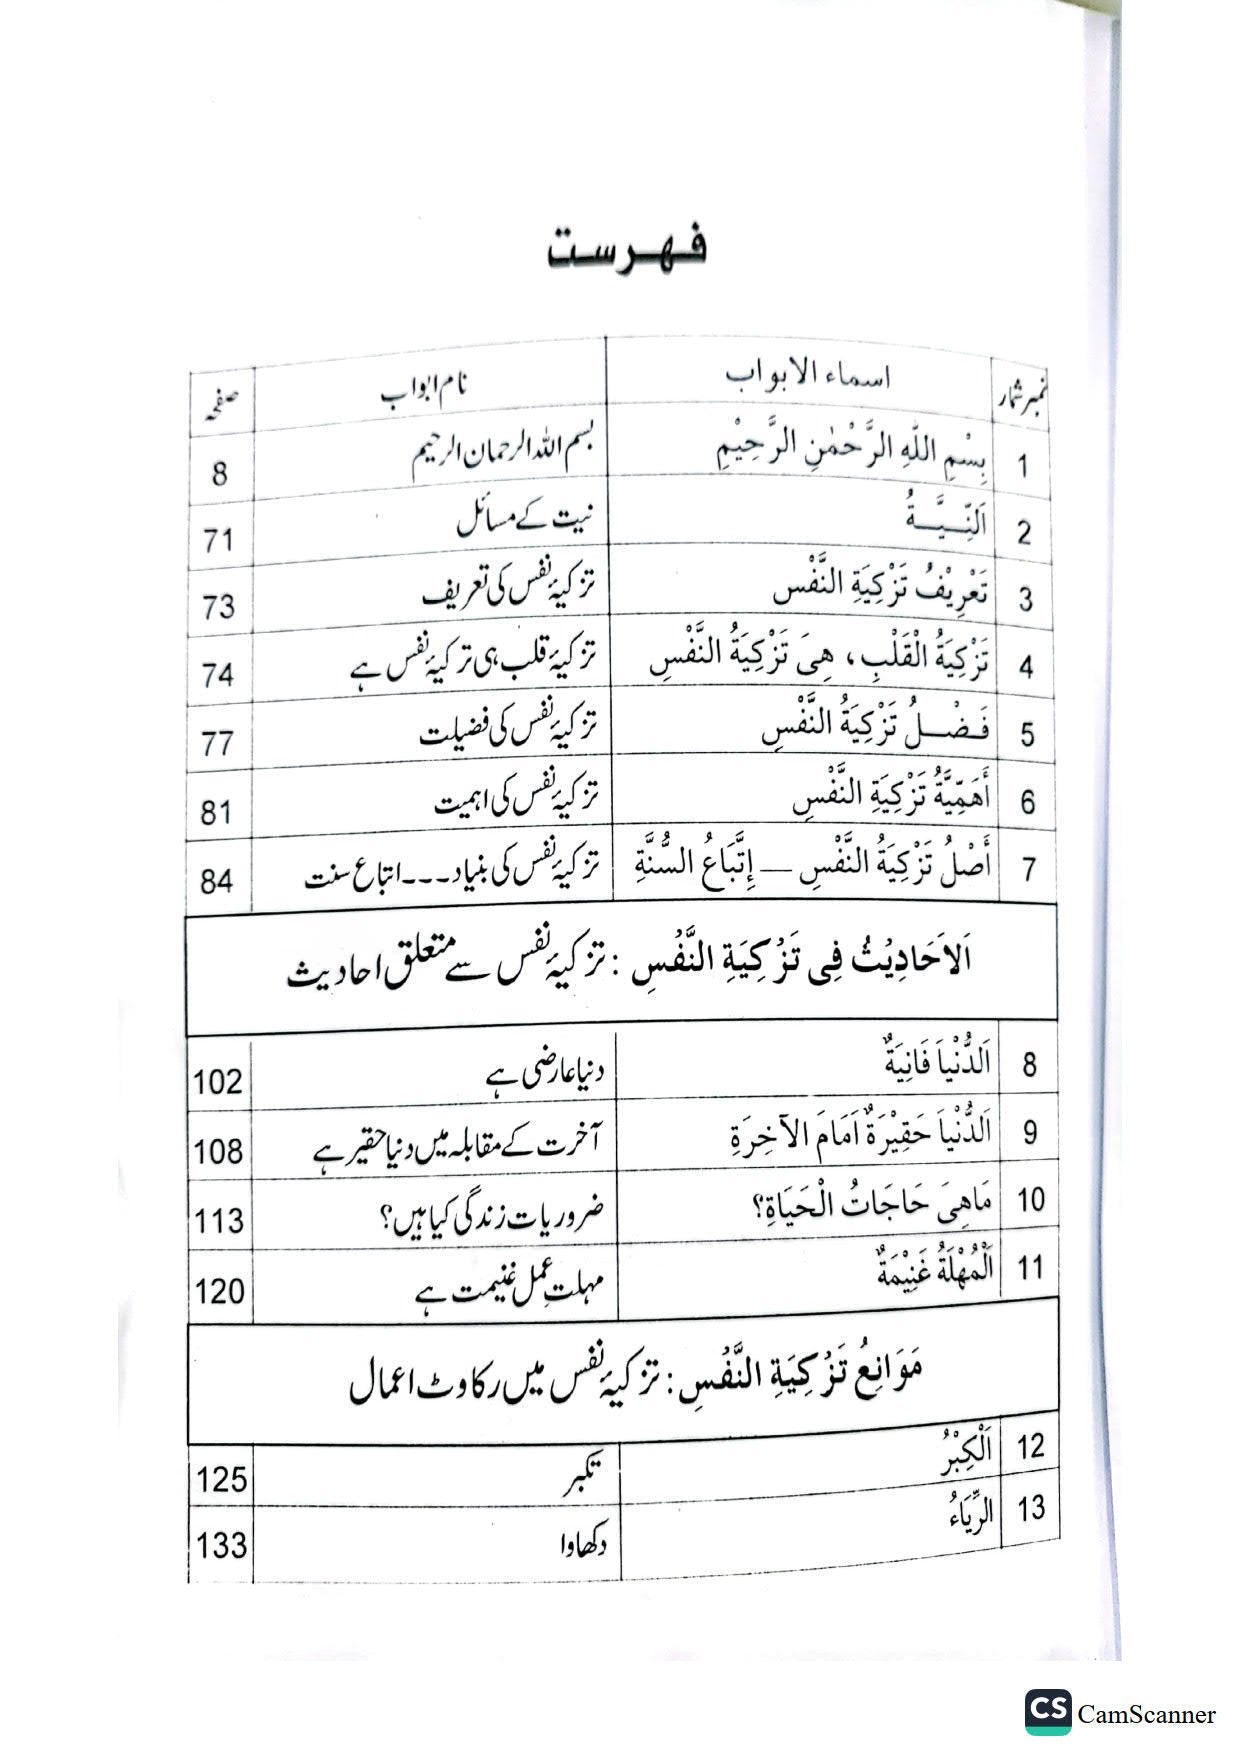 فہرست
نمبر شمار اسماء الابواب نام ابواب صفحہ
1 بِسْمِ اللّٰهِ الرَّحْمٰنِ الرَّحِيْمِ بسم اللہ الرحمان الرحیم 8
2 اَلنِّيَّةُ نیت کے مسائل 71
3 تَعْرِيْفُ تَزْكِيَةِ النَّفْسِ تزکیۂ نفس کی تعریف 73
4 تَزْكِيَةُ الْقَلْبِ، هِىَ تَزْكِيَةُ النَّفْسِ تزکیۂ قلب ہی تزکیۂ نفس ہے 74
5 فَضْلُ تَزْكِيَةُ النَّفْسِ تزکیۂ نفس کی فضیلت 77
6 أَهَمِّيَّةُ تَزْكِيَةِ النَّفْسِ تزکیۂ نفس کی اہمیت 81
7 أَصْلُ تَزْكِيَةُ النَّفْسِ — إِتَّبَاعُ السُّنَّةِ تزکیۂ نفس کی بنیاد۔۔۔اتباع سنت 84
اَلاَحَادِيْثُ فِى تَزْكِيَةِ النَّفْسِ : تزکیۂ نفس سے متعلق احادیث
8 اَلدُّنْيَا فَانِيَةٌ دنیا عارضی ہے 102
9 اَلدُّنْيَا حَقِيْرَةٌ اَمَامَ الآخِرَةِ آخرت کے مقابلہ میں دنیا حقیر ہے 108
10 مَاهِىَ حَاجَاتُ الْحَيَاةِ؟ ضروریات زندگی کیا ہیں؟ 113
11 اَلْمُهْلَةُ غَنِيْمَةٌ مہلتِ عمل غنیمت ہے 120
مَوَانِعُ تَزْكِيَةِ النَّفْسِ : تزکیۂ نفس میں رکاوٹ اعمال
12 اَلْكِبْرُ تکبر 125
13 الرِّيَاءُ دکھاوا 133
CS CamScanner